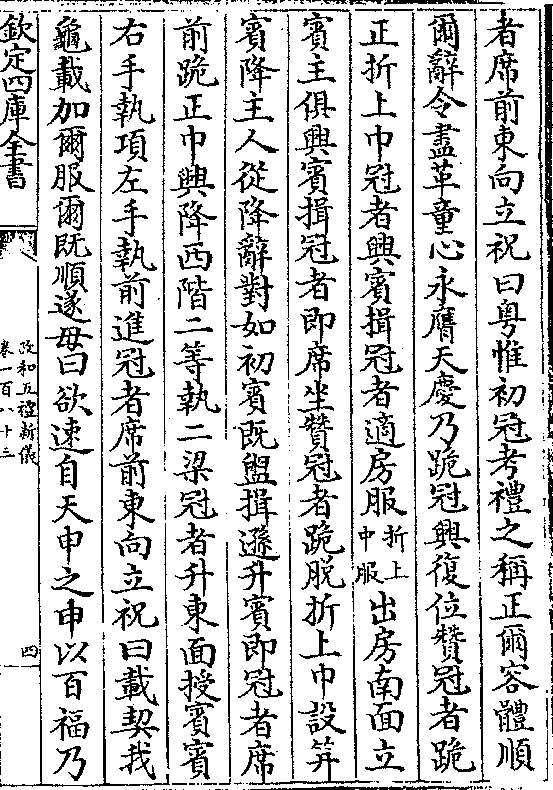 者席前東向立祝曰粤惟初冠考禮之稱正爾容體順
爾辭令盡革童心永膺天慶乃跪冠興復位贊冠者跪
正折上巾冠者興賓揖冠者適房服折上巾服出房南面立
賓主俱興賓揖冠者即席坐贊冠者跪脱折上巾設笄
賓降主人從降辭對如初賓既盥揖遜升賓即冠者席
前跪正巾興降西階二等執二梁冠者升東面授賓賓
右手執項左手執前進冠者席前東向立祝曰載契我
龜載加爾服爾既順遂毋曰欲速自天申之申以百福乃
欽定四庫全書
政和五禮新儀
卷一百八十三
四